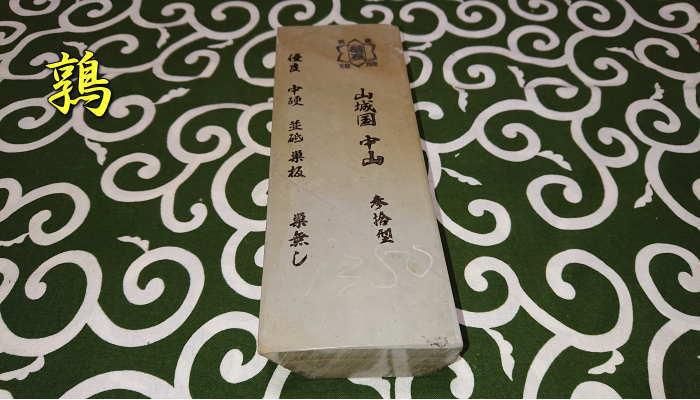 鶉
山城国 中山 参拾型
優良 中硬 並砥 巣板 巣無し